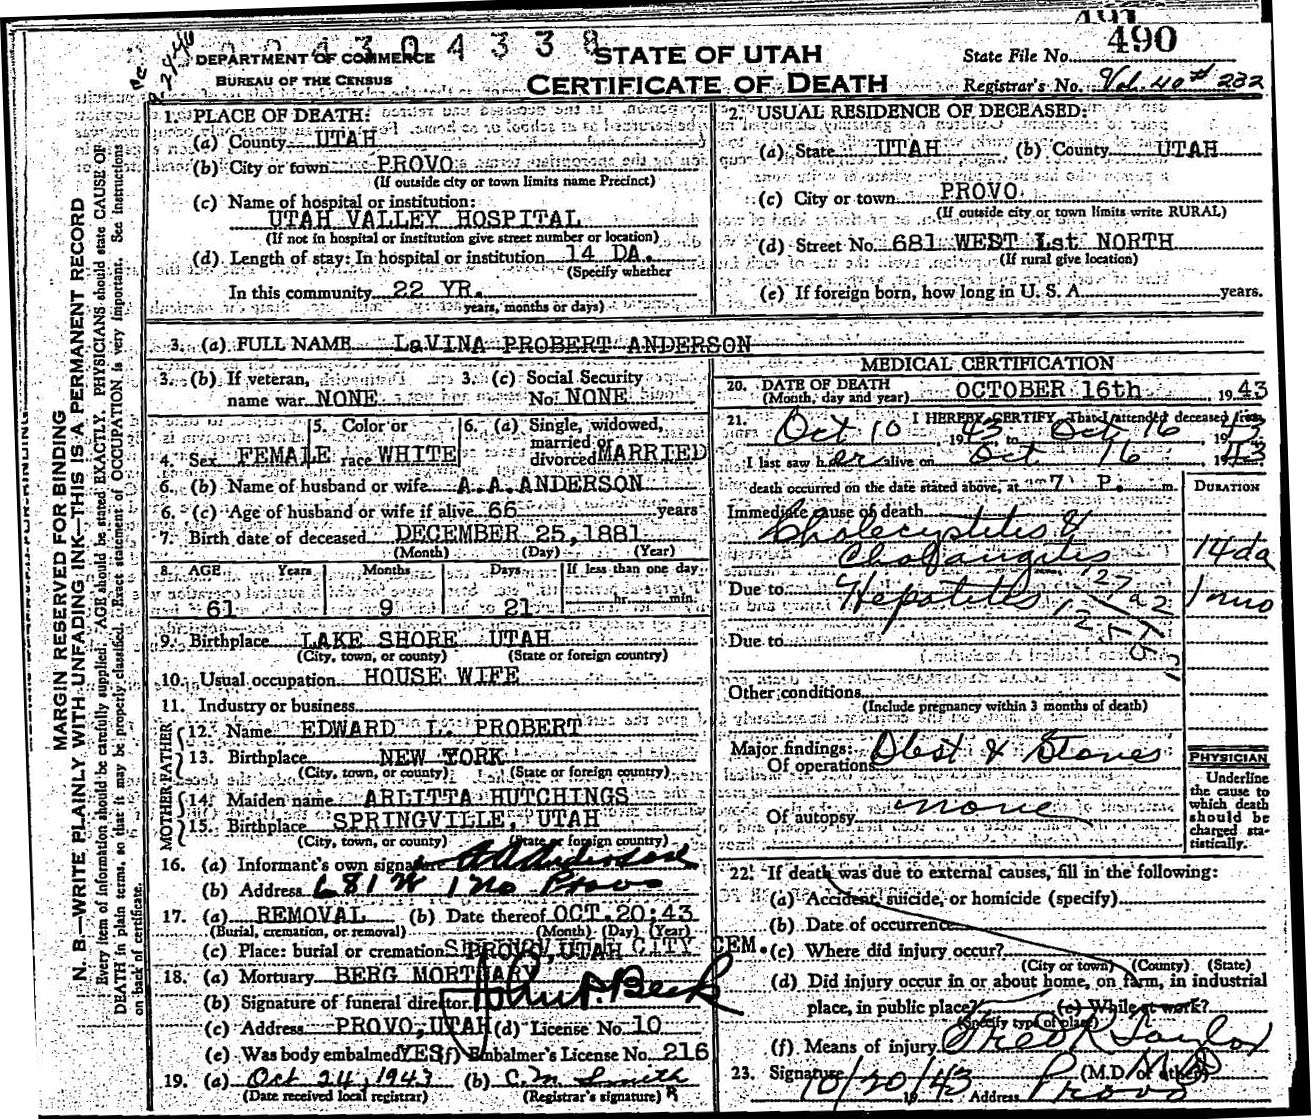 490
State File No.
Registrar's No. Vol. 40 # 232
DEPARTMENT OF COMMERCE
BUREAU OF THE CENSUS
STATE OF UTAH
CERTIFICATE OF DEATH
MARGIN RESERVED FOR BINDING
N. B.—WRITE PLAINLY, WITH UNFADING INK—THIS IS A PERMANENT RECORD
Every item of information should be carefully supplied. AGE should be stated EXACTLY. PHYSICIANS should state CAUSE OF
DEATH in plain terms, so that it may be properly classified. Exact statement of OCCUPATION is very important. See instructions
on back of certificate.
1. PLACE OF DEATH:
(a) County UTAH
(b) City or town PROVO
(If outside city or town limits name Precinct)
(c) Name of hospital or institution:
UTAH VALLEY HOSPITAL
(If not in hospital or institution give street number or location)
(d) Length of stay: In hospital or institution 14 DA.
(Specify whether
In this community 22 YR.
years, months or days)
2. USUAL RESIDENCE OF DECEASED:
(a) State UTAH (b) County UTAH
(c) City or town PROVO
(If outside city or town limits write RURAL)
(d) Street No. 681 WEST 1st NORTH
(If rural give location)
(e) If foreign born, how long in U. S. A. years.
3. (a) FULL NAME LaVINA PROBERT ANDERSON
3. (b) If veteran, name war NONE
3. (c) Social Security No. NONE
4. Sex FEMALE
5. Color or race WHITE
6. (a) Single, widowed, married or divorced MARRIED
6. (b) Name of husband or wife A.A.ANDERSON
6. (c) Age of husband or wife if alive 66 years
7. Birth date of deceased DECEMBER 25,1881
(Month) (Day) (Year)
8. AGE Years Months Days If less than one day
61 9 21 hr. min.
9. Birthplace LAKE SHORE UTAH
(City, town, or county) (State or foreign country)
10. Usual occupation HOUSE WIFE
11. Industry or business
FATHER
12. Name EDWARD L. PROBERT
13. Birthplace NEW YORK
(City, town, or county) (State or foreign country)
MOTHER
14. Maiden name ARLITTA HUTCHINGS
15. Birthplace SPRINGVILLE, UTAH
(City, town, or county) (State or foreign country)
16. (a) Informant's own signature A A Anderson
(b) Address 681 W 1 No Provo
17. (a) REMOVAL (b) Date thereof OCT.20;43
(Burial, cremation, or removal) (Month) (Day) (Year)
(c) Place: burial or cremation PROVO, UTAH CITY CEM.
18. (a) Mortuary BERG MORTUARY
(b) Signature of funeral director
(c) Address PROVO,UTAH (d) License No. 10
(e) Was body embalmed YES (f) Embalmer's License No. 216
19. (a) Oct 24, 1943 (b) C.M Smith
(Date received local registrar) (Registrar's signature)
MEDICAL CERTIFICATION
20. DATE OF DEATH OCTOBER 16th 1943
(Month, day and year)
21. I HEREBY CERTIFY That I attended deceased from
Oct 10, 1943 to Oct 16 1943
I last saw her alive on Oct 16 1943
death occurred on the date stated above, at 7 P. m.
DURATION
Immediate cause of death
Cholecystites &
Cholangites 14 da
Due to Hepatites 1 mo
127
Due to
Other conditions
(Include pregnancy within 3 months of death)
Major findings:
Of operations Obst & Stones
Of autopsy none
PHYSICIAN
Underline
the cause to
which death
should be
charged sta-
tistically.
22. If death was due to external causes, fill in the following:
(a) Accident, suicide, or homicide (specify)
(b) Date of occurrence
(c) Where did injury occur?
(City or town) (County) (State)
(d) Did injury occur in or about home, on farm, in industrial
place, in public place? (e) While at work?
(Specify type of place)
(f) Means of injury
23. Signature Fred R Taylor MD (M.D. or other)
10/20/43 Address Provo